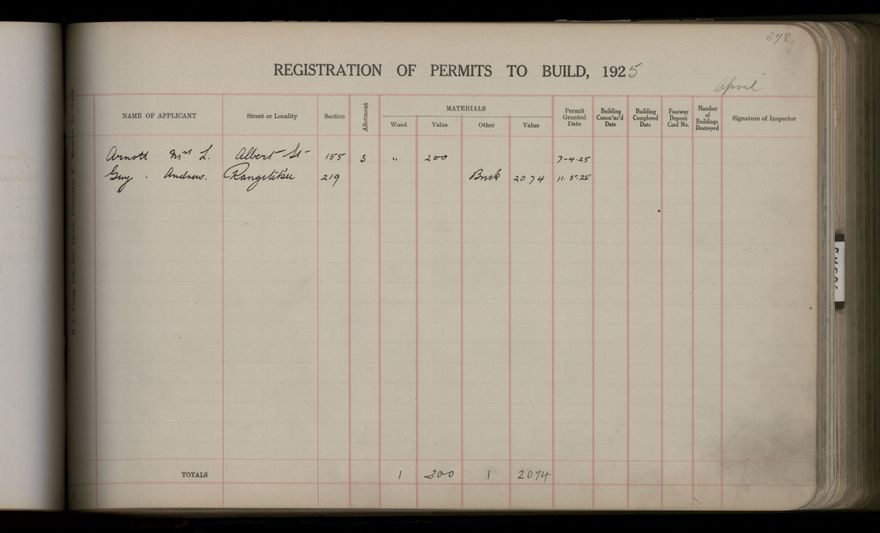 378.
REGISTRATION OF PERMITS TO BUILD, 1925
April
NAME OF APPLICANT Street or Locality Section Allotment MATERIALS Wood Value Other Value Permit Granted Date Building Comm'nc'd Date Building Completed Date Footway Deposit Card No. Number of Buildings Destroyed Signature of Inspector
Arnott Mrs L. Albert St 155 3 " 200 7-4-25
Guy . Andrew. Rangitikei 219 Brick 2074 11.5.25
TOTALS 1 200 1 2074